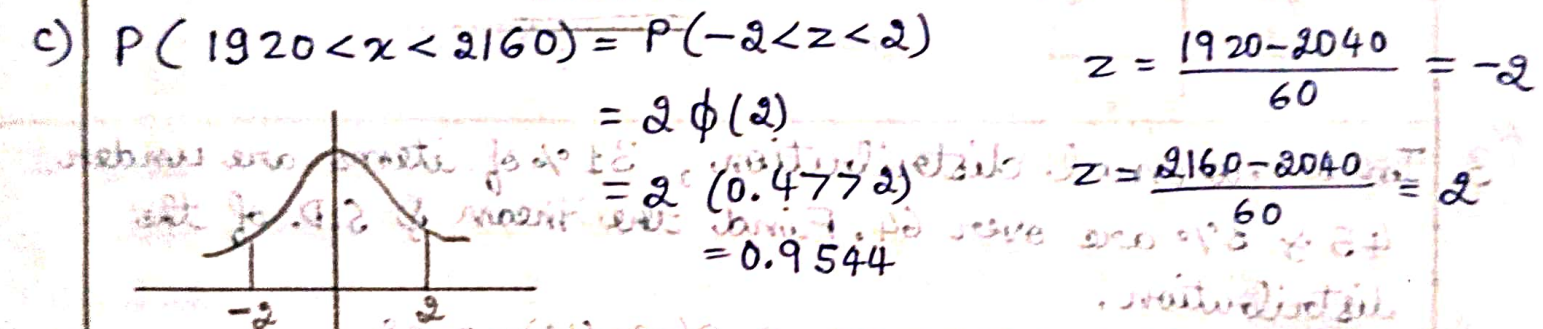 c) P( 1920 < x < 2160) = P(-2 < z < 2)
= 2 ϕ(2)
= 2 (0.4772)
= 0.9544
z = 1920-2040 / 60 = -2
z = 2160-2040 / 60 = 2
-2 2